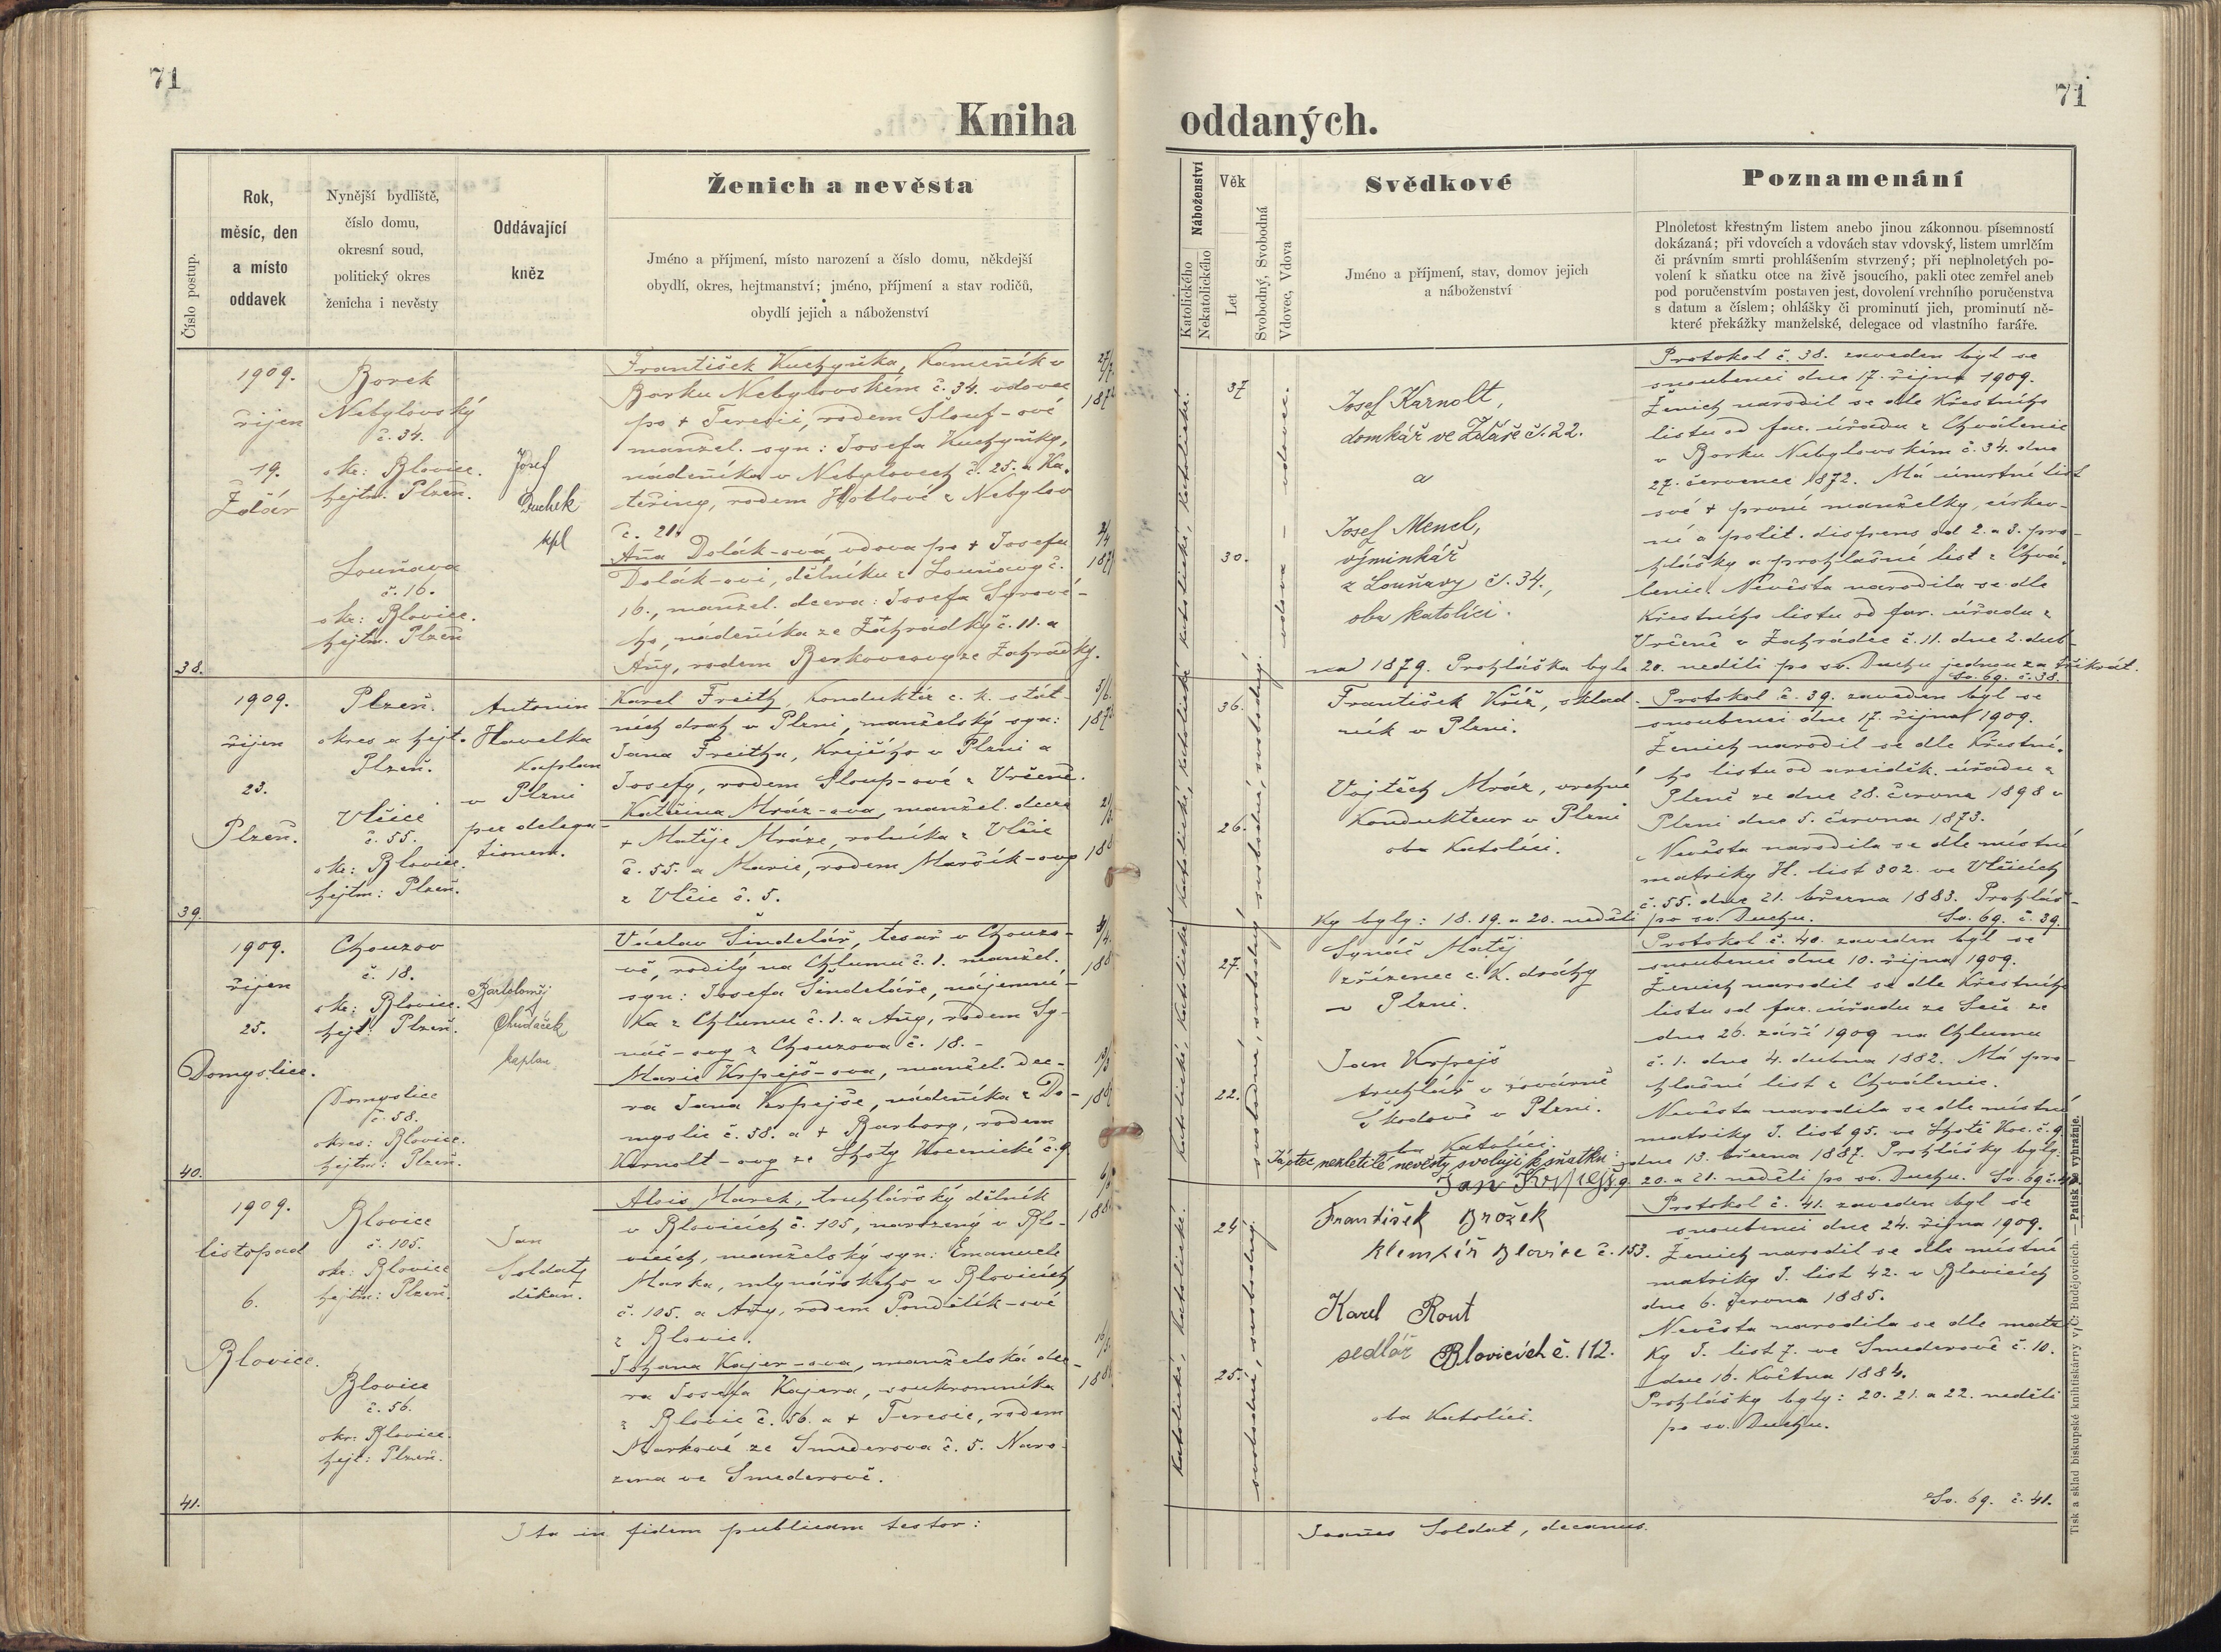 71
Kniha
Číslo postup.
Rok,
měsíc, den
a místo
oddavek
Nynější bydliště,
číslo domu,
okresní soud,
politický okres
ženicha i nevěsty
Oddávající
kněz
Ženich a nevěsta
Jméno a příjmení, místo narození a číslo domu, někdejší
obydlí, okres, hejtmanství; jméno, příjmení a stav rodičů,
obydlí jejich a náboženství
38.
1909.
říjen
19.
Ždár
Borek
Nebylovský
č. 34.
okr: Blovice.
hejtm: Plzeň.
Louňava
č. 16.
okr: Blovice.
hejtm. Plzeň
Josef
Duchek
kpl
František Kuchyňka, kameník v
Borku Nebylovském č. 34. vdovec
po + Teresii, rodem Šlouf-ové
manžel. syn: Josefa Kuchyňky,
nádeníka v Nebylovech č. 25. a Ka-
teřiny, rodem Hoblové z Nebylov
č. 21.
Aña Dolák-ová, vdova po + Josefu
Dolák-ovi, dělníku z Louňavy č.
16., manžel. dcera: Josefa Syrové-
ho, nádeníka ze Záhrádky č. 11. a
Añy, rodem Berkovcovy ze Zahrádky.
39.
1909.
říjen
23.
Plzeň.
Plzeň.
okres a hejt.
Plzeň.
Vlčice
č. 55.
okr: Blovice.
hejtm: Plzeň.
Antonín
Havelka
kaplan
v Plzni
per delega-
tionem.
Karel Freith, konduktér c. k. stát-
ních drah v Plzni, manželský syn:
Jana Freitha, krejčího v Plzni a
Josefy, rodem Šloup-ové z Vrčeně.
Kateřina Mráz-ova, manžel. dcera
+ Matěje Mráze, rolníka z Vlčic
č. 55. a Marie, rodem Marčík-ovy
z Vlčic č. 5.
40.
1909.
říjen
25.
Domyslice.
Chouzov
č. 18.
okr: Blovice.
hejt: Plzeň.
Domyslice
č. 58.
okres: Blovice.
hejtm: Plzeň.
Bartoloměj
Chudáček
kaplan
Václav Šindelář, tesař v Chouzo-
vě, rodilý na Chlumu č. 1. manžel.
syn: Josefa Šindeláře, nájemní-
ka z Chlumu č. 1. a Añy, rodem Sy-
náč-ovy z Chouzova č. 18. -
Marie Krpejš-ova, manžel. dce-
ra Jana Krpejše, nádeníka z Do-
myslic č. 58. a + Barbory, rodem
Karnolt-ovy ze Lhoty Kocenické č. 9.
41.
1909.
listopad
6.
Blovice.
Blovice
č. 105.
okr: Blovice
hejtm: Plzeň.
Blovice
č. 56.
okr: Blovice.
hejt: Plzeň.
Jan
Soldat
děkan.
Alois Marek, truhlářský dělník
v Blovicích č. 105, narozený v Blo-
vicích, manželský syn: Emanuele
Marka, mlynářského v Blovicích
č. 105. a Añy, rodem Pondělík-ové
z Blovic.
Johana Kajer-ova, manželská dce-
ra Josefa Kajera, soukromníka
z Blovic č. 56. a + Teresie, rodem
Markové ze Smederova č. 5. Naro-
zena ve Smederově.
Ita in fidem publicam testor:
71
oddaných.
Náboženství
Katolického
Nekatolického
Věk
Let
Svobodný, Svobodná
Vdovec, Vdova
Svědkové
Jméno a příjmení, stav, domov jejich
a náboženství
Poznamenání
Plnoletost křestným listem anebo jinou zákonnou písemností
dokázaná; při vdovcích a vdovách stav vdovský, listem umrlčím
či právním smrti prohlášením stvrzený; při neplnoletých po-
volení k sňatku otce na živě jsoucího, pakli otec zemřel aneb
pod poručenstvím postaven jest, dovolení vrchního poručenstva
s datum a číslem; ohlášky či prominutí jich, prominutí ně-
které překážky manželské, delegace od vlastního faráře.
37
30.
vdova - vdovec.
Josef Karnolt,
domkář ve Ždáře č. 22.
a
Josef Mencl,
výminkář
z Louňavy č. 34.,
oba katolíci.
Protokol č. 38. zaveden byl se
snoubenci dne 17. října 1909.
Ženich narodil se dle křestního
listu od far. úřadu z Chválenic
v Borku Nebylovském č. 34. dne
27. července 1872. Má úmrtní list
své + první manželky, církev-
ní a polit. dispens od 2. a 3. pro-
hlášky a prohlašné list z Chvá-
lenic. Nevěsta narodila se dle
křestního listu od far. úřadu z
Vrčeně v Zahrádce č. 11. dne 2. dub-
na 1879. Prohláška byla 20. neděli po sv. Duchu jednou za třikrát.
Sv. 69. č. 38.
36.
26.
František Kříž, sklad-
ník v Plzni.
Vojtěch Mráz, vrchní
kondukteur v Plzni
oba katolíci.
Protokol č. 39. zaveden byl se
snoubenci dne 17. října 1909.
Ženich narodil se dle křestní-
ho listu od arciděk. úřadu z
Plzně ze dne 28. června 1898 v
Plzni dne 5. června 1873.
Nevěsta narodila se dle místní
matriky H. list 302. ve Vlčicích
č. 55. dne 21. března 1883. Prohláš-
ky byly: 18. 19. a 20. neděli po sv. Duchu. Sv. 69. č. 39.
27.
22.
Synáč Matěj
zřízenec c. k. dráhy
v Plzni.
Jan Krpejš
truhlář v továrně
Škodově v Plzni.
oba katolíci.
Já otec nezletilé nevěsty svoluji k sňatku:
Jan Krpejš
Protokol č. 40. zaveden byl se
snoubenci dne 10. října 1909.
Ženich narodil se dle křestního
listu od far. úřadu ze Seče ze
dne 26. září 1909 na Chlumu
č. 1. dne 4. dubna 1882. Má pro-
hlašné list z Chválenic.
Nevěsta narodila se dle místní
matriky I. list 95. ve Lhotě Koc. č. 9.
dne 13. března 1887. Prohlášky byly:
19. 20. a 21. neděli po sv. Duchu. Sv. 69. č. 40.
24
25.
František Brožek
klempíř Blovice č. 153.
Karel Rout
sedlář Blovicích č. 112.
oba katolíci.
Protokol č. 41. zaveden byl se
snoubenci dne 24. října 1909.
Ženich narodil se dle místní
matriky I. list 42. v Blovicích
dne 6. června 1885.
Nevěsta narodila se dle matri-
ky I. list 7. ve Smederově č. 10.
dne 16. května 1884.
Prohlášky byly: 20. 21. a 22. neděli
po sv. Duchu.
Sv. 69. č. 41.
Joanes Soldat, decanus.
Tisk a sklad biskupské knihtiskárny v Č. Budějovicích. — Patisk se vyhražuje.